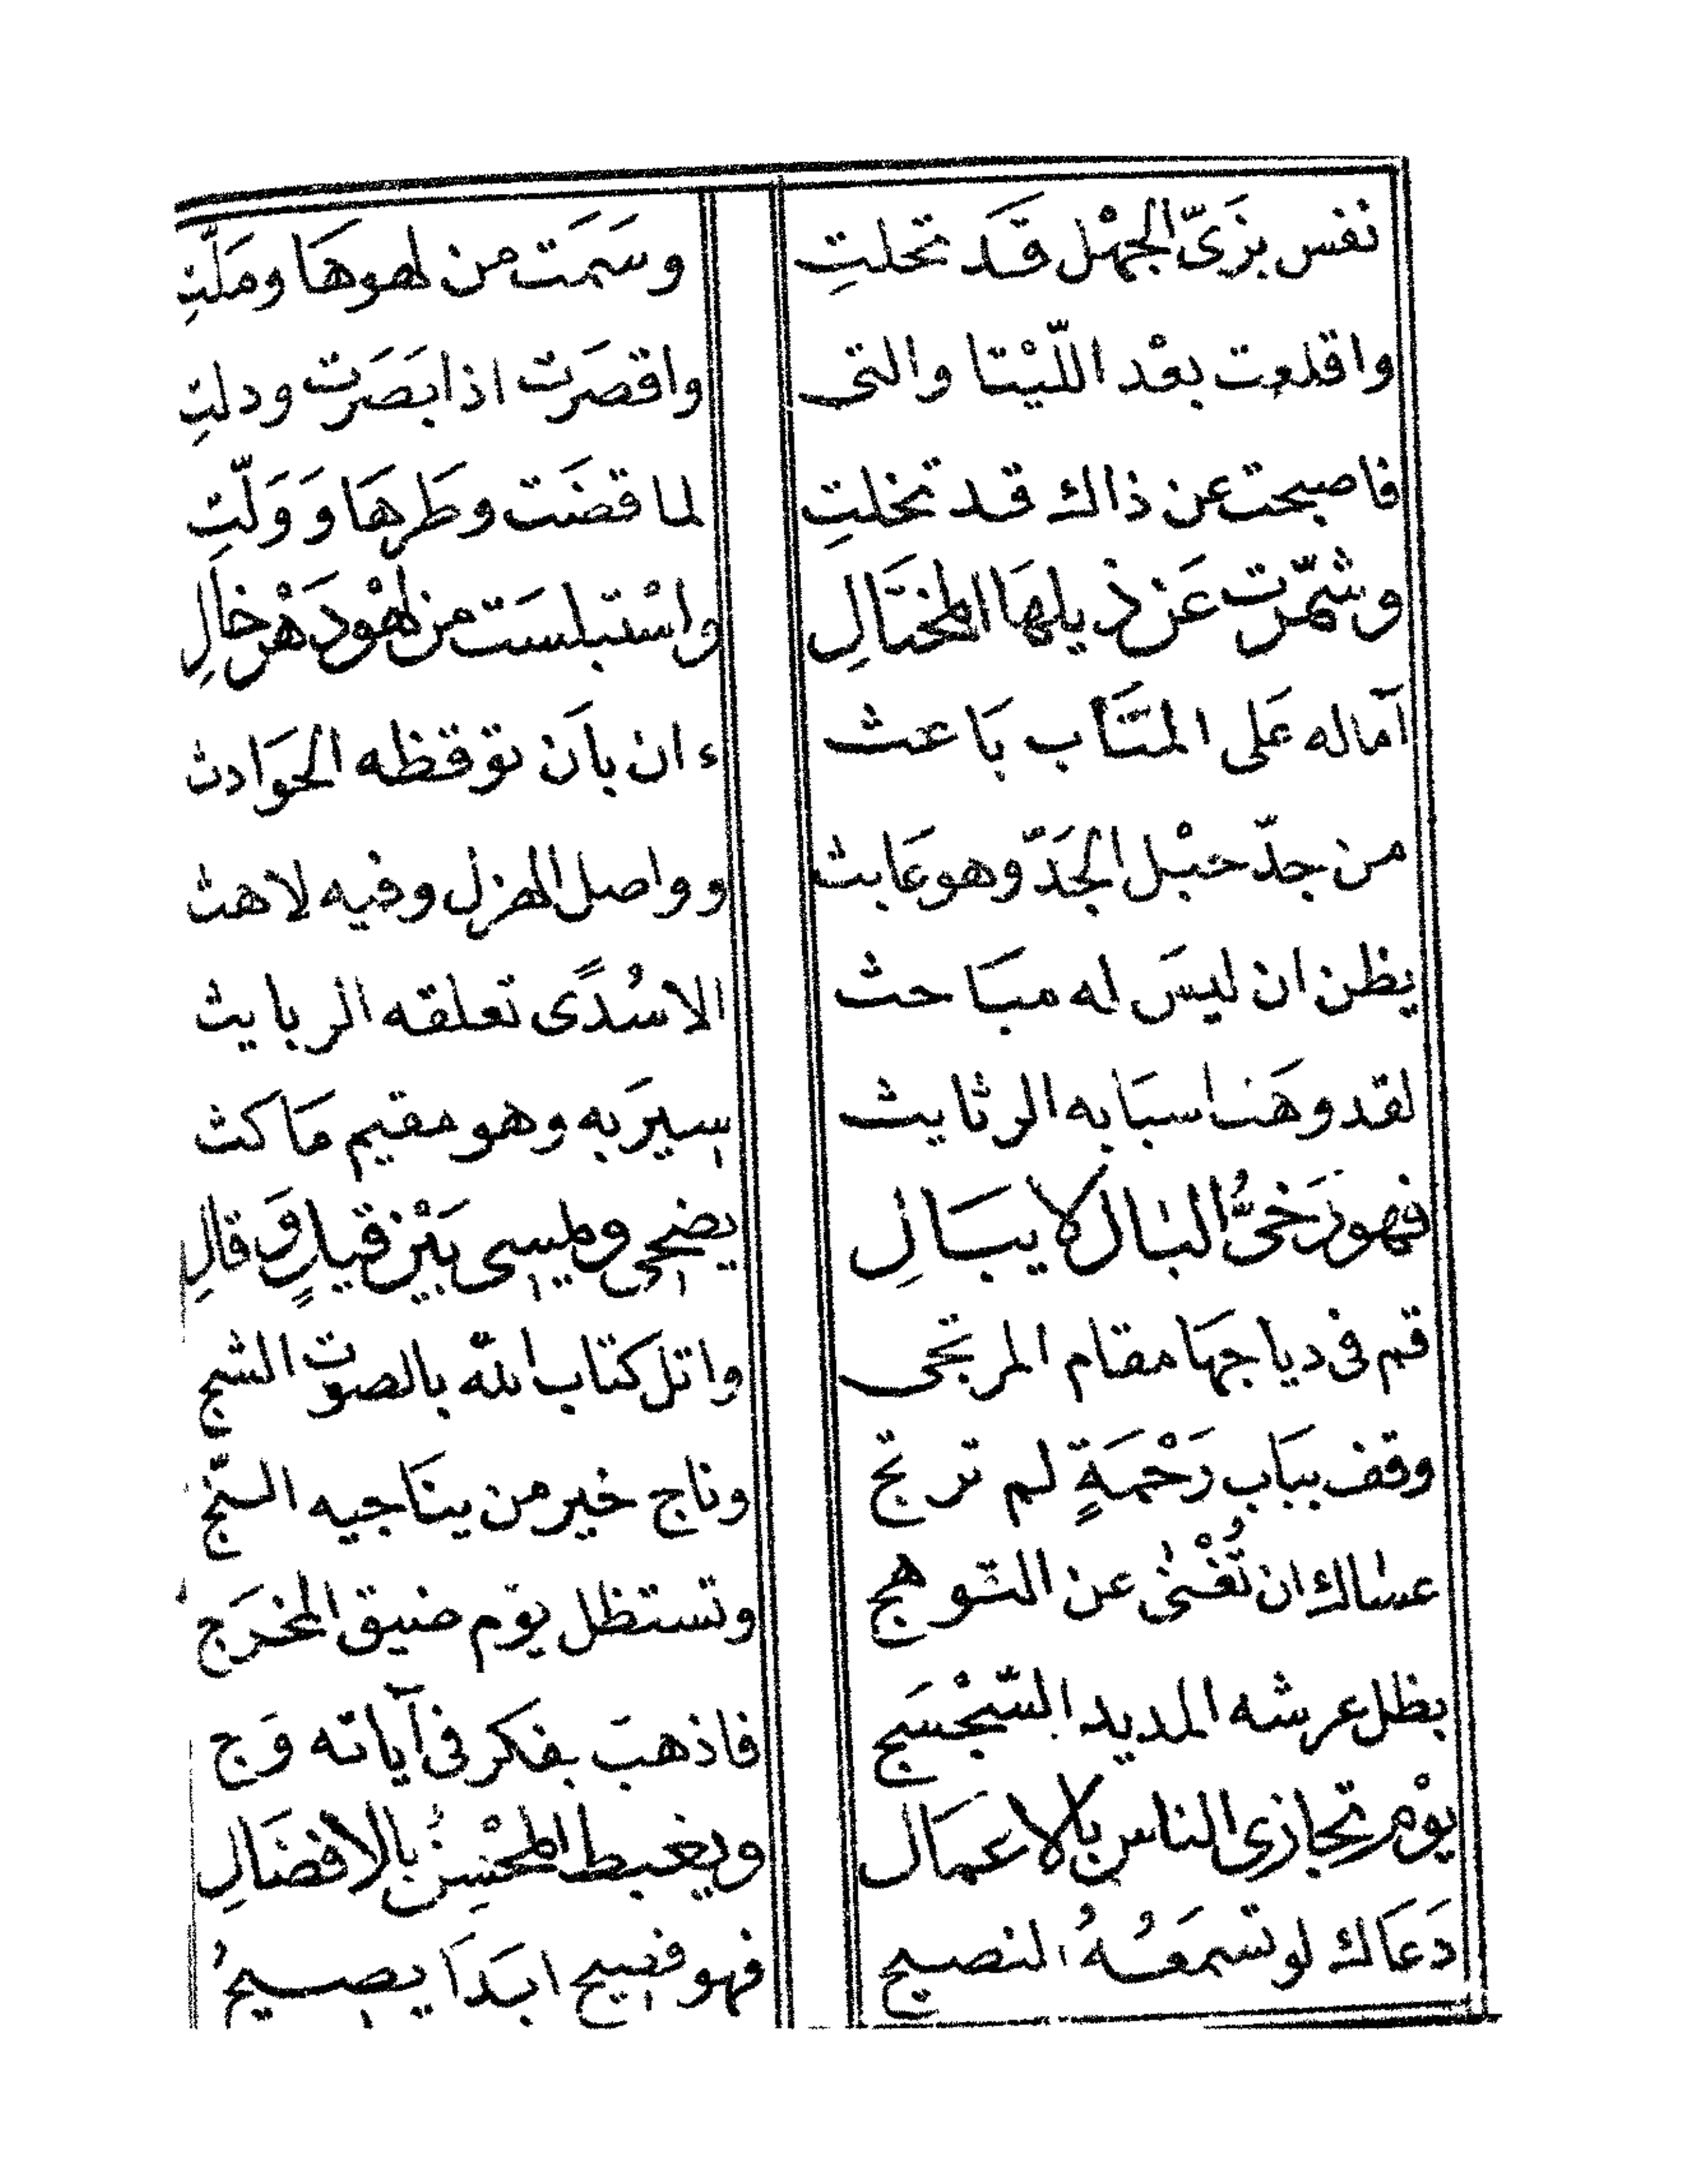 نفس بزَىّ الجهْل قَد تحلتِ وسَمَت من لهوهَا ومَلَّتِ
واقلعت بعْد اللّيْتا والتى واقصَرت اذا بَصَرت ودلتِ
فاصبحت عن ذاك قد تخلتِ لما قضَت وطَرهَا وَوَلّتِ
وشمّرت عَن ذيلهَا المختَالِ واسْتبلسَت من لهْو دَهْر خالِ
آماله عَلى المتَاب بَاعث ءان بأَن توقظه الحَوَادث
من جدّ حبْل الجَدّ وهو عَابث وواصل الهزل وفيه لاهث
يظن ان ليسَ له مبَاحث الاسُدًى تعلقه الربايث
لقد وهَنا سبَابه الرثايث سيرَ به وهو مقيم مَاكث
فهو رَخىُّ البال لا يبَالِ يضحى ويمسى بَيْن قيلٍ وَقالِ
قم فى دياجهَا مقام المرتجى واتل كتاب الله بالصوت الشجِ
وقف ببَاب رَحْمَةٍ لم ترتج وناج خير من ينَاجيه النّجِ
عساك ان تُغْنى عن التوهج وتستظل يوم ضيق المخرَج
بظل عرشه المديد السّجْسَج فاذهبَ بفكر فى آياته وَج
يوْم تجازى الناس بالاعمَال ويغبط المحْسِنُ بالافضَالِ
دَعَاك لو تسمَعُهُ النصيح فهو فصيح ابَدَا يصيحُ